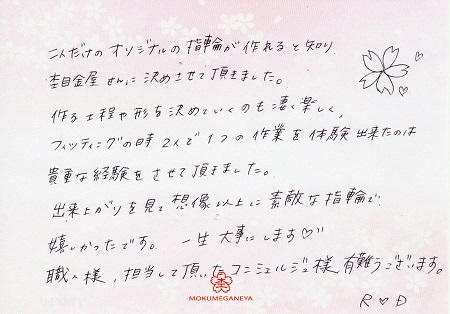 二人だけのオリジナルの指輪が作れると知り
杢目金屋さんに決めさせて頂きました。
作る工程や形を決めていくのも凄く楽しく、
フィッティングの時2人で1つの作業を体験出来たのは
貴重な経験をさせて頂きました。
出来上がりを見て想像以上に素敵な指輪で
嬉しかったです。一生大事にします♡
職人様、担当して頂いたコンシェルジュ様有難うございます。
MOKUMEGANEYA
R♡D